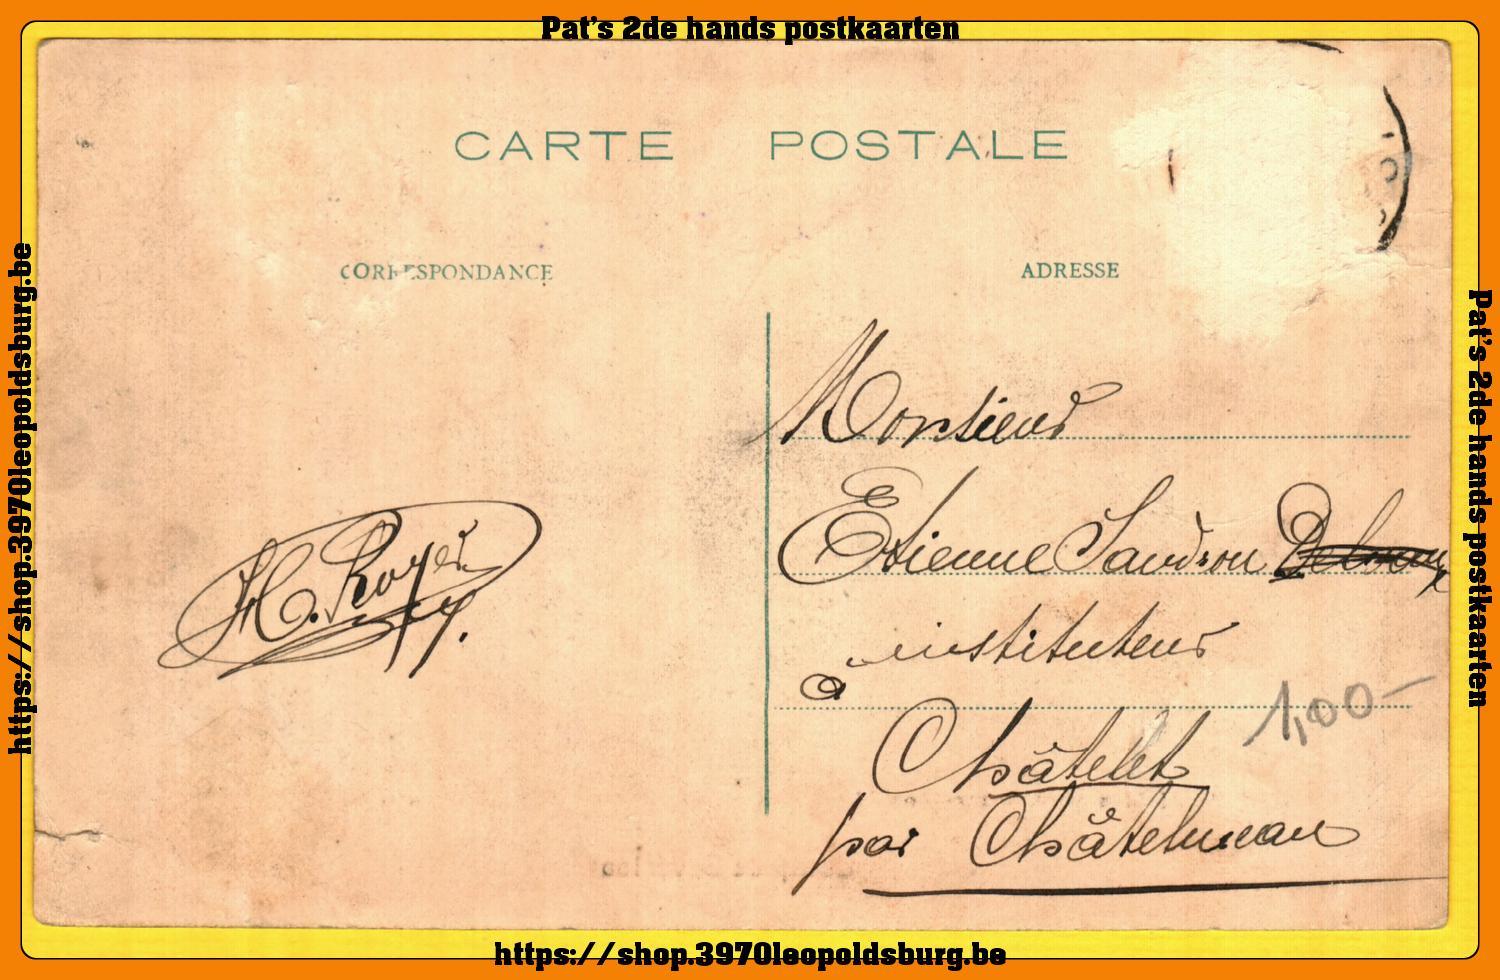 Pat's 2de hands postkaarten
CARTE POSTALE
CORRESPONDANCE
ADRESSE
Monsieur
Etienne
instituteur
à
Châtelet
par Châtelineau
H. Royer
1,00-
https://shop.3970leopoldsburg.be
Pat's 2de hands postkaarten
https://shop.3970leopoldsburg.be